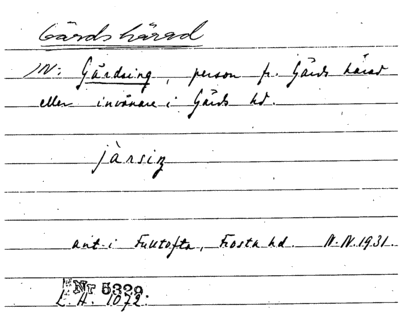 Gärds härad
IN: Gärdsing, person fr. Gärds härad
eller invånare i Gärds hd.
järsiŋ
ant. i Fulltofta, Frosta hd. N.N. 1931.
Nr 5329
L. A. 1072.